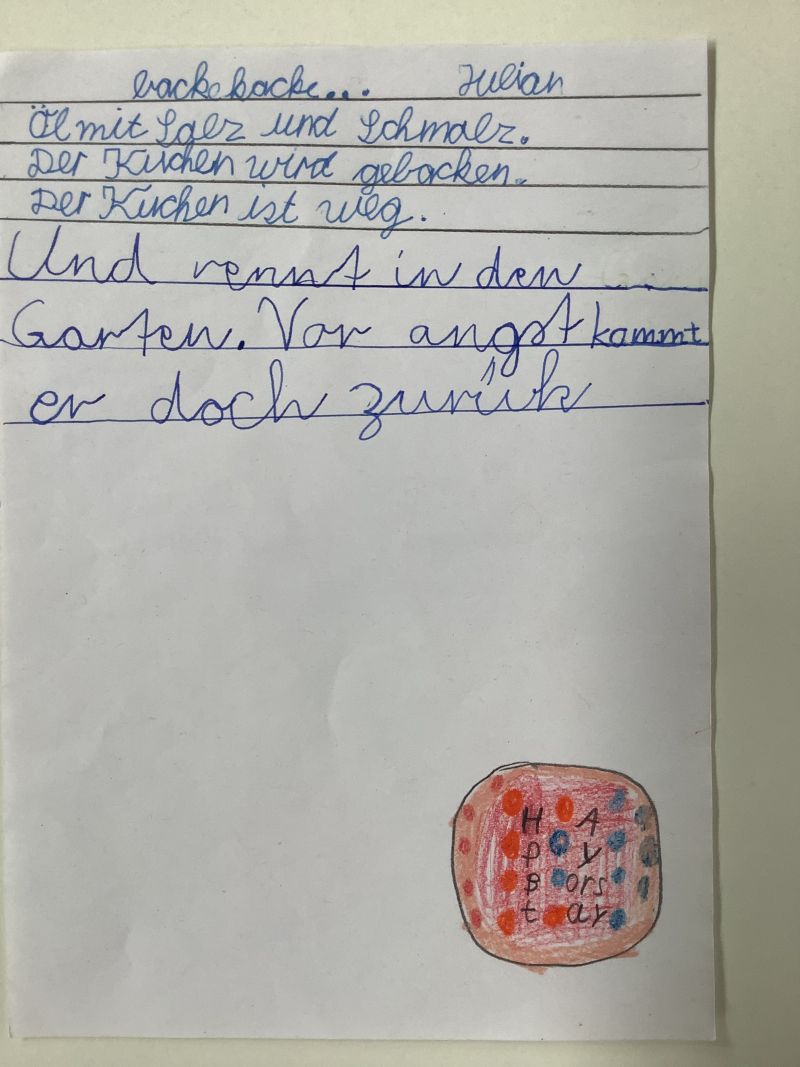 backebacke... Julian
Öl mit Salz und Schmalz.
Der Kuchen wird gebacken.
Der Kuchen ist weg.
Und rennt in den
Garten. Vor angst kommt
er doch zurük
H A
p y
B ors
t ay